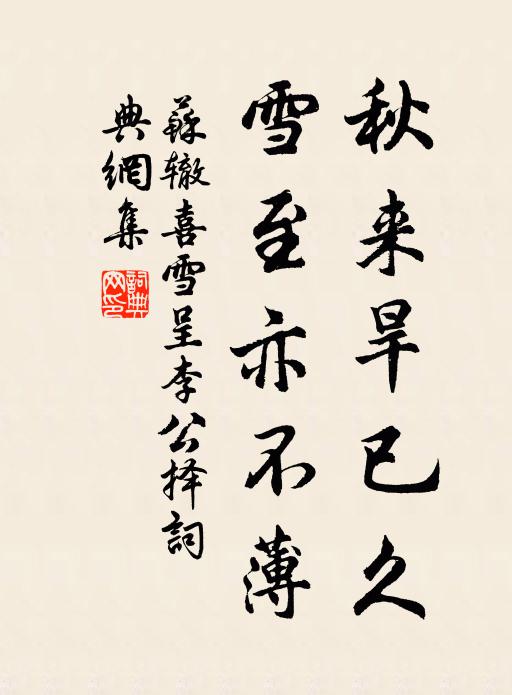 秋来旱已久
雪至亦不薄
蘇辙喜雪呈李公择詞
典網集
詞典网印